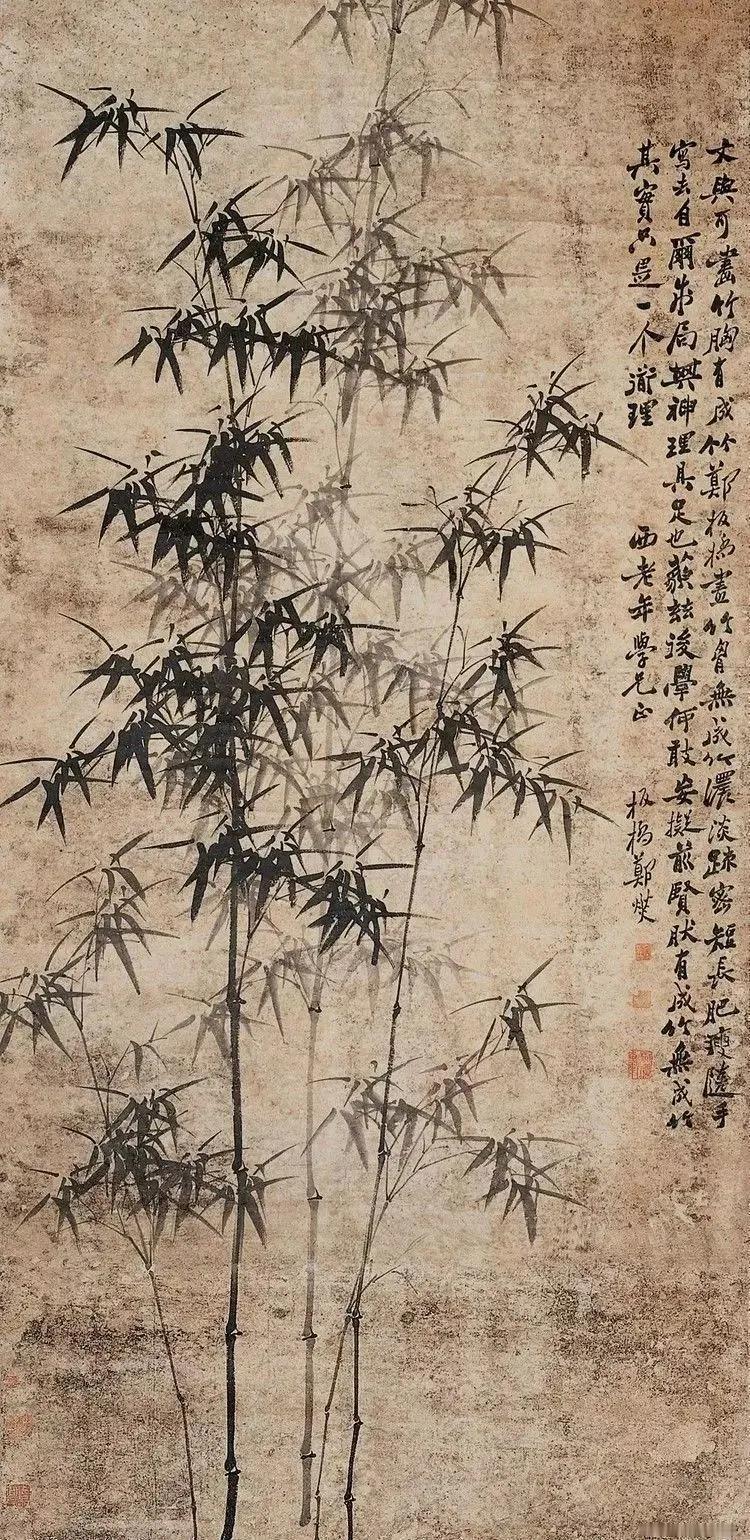 文與可畫竹胸有成竹鄭板橋畫竹胸無成竹濃淡疎密短長肥瘦隨手
寫去自爾成局其神理具足也藐茲後學何敢妄擬前賢肰有成竹無成竹
其實只是一个道理
酉老年學兄正
板橋鄭燮